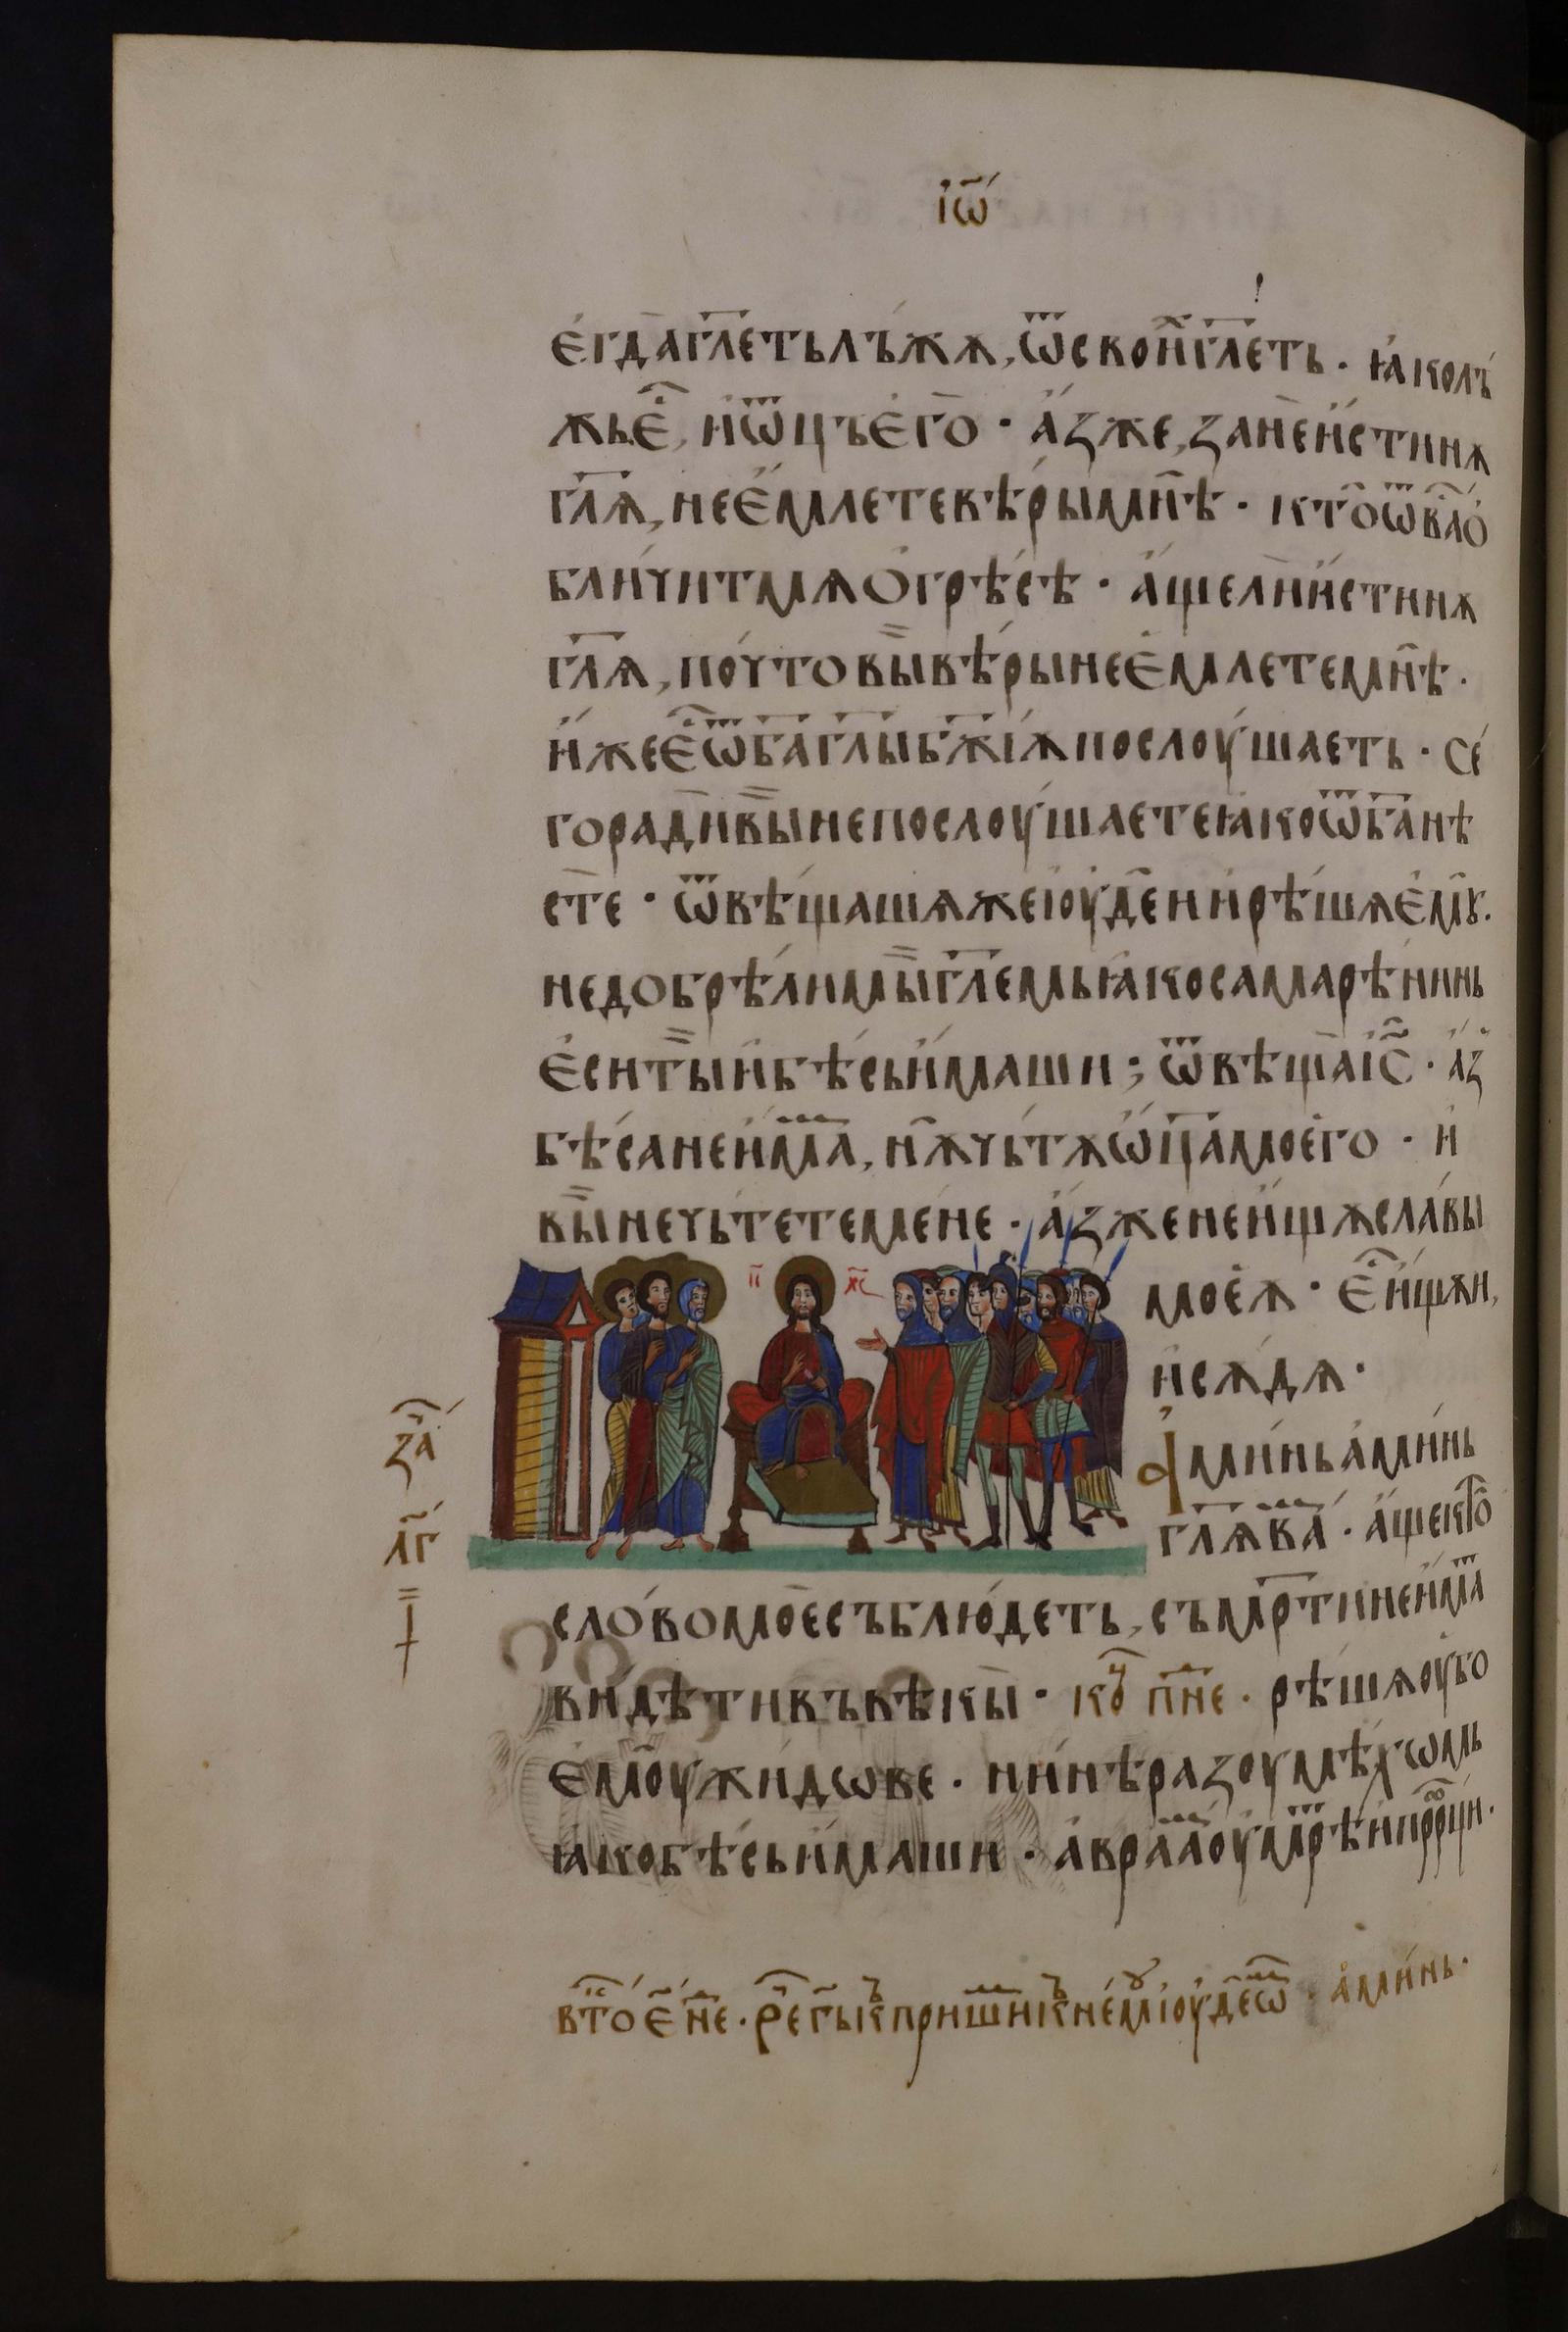 і҆ѡ҃
є҆гда̀гл҃етьлъжѫ, ѿскои̑хгл҃еть · ꙗ҆колъ́
жье̑, и҆ѿцъє҆го̀ · а҆́ꙁже, ꙁанѐи҆́стинѫ
гл҃ѧ, неє҆́млетевѣ́рымн҃ѣ · кто̀ѿва̑о҆
бличи́тмѧѡ҆грѣ́сѣ · а҆́щели̇и҆́стинѫ
гл҃ѧ, почтовы̏вѣ́рынеє҆́млетемн҃ѣ ·
и҆́жеє̑ѿба҃гл҃ыбж҃і́ѫпослоу́шаеть · се́
горади̇вы̏непослоу́шаетеꙗ҆коѿба҃нѣ
сте · ѿвѣщашѧжеіоуде́ии҆рѣ́шѧє҆мꙋ̀.
недобрѣ́лимы̏гл҃емьꙗ҆косамарѣ́нинь
є҆ситы̏и҆бѣ́сьи҆́маши ; ѿвѣща̀іс҃ · а҆́ꙁ
бѣ́санеи҆́ма̀, нѫ̀чьтѫ̀ѡ҆ц҃амоего̀ · и҆
вы̏нечьтѐтемѐне · а҆́ꙁженеи҆щѫ̀сла́вы
моеѧ̀ · є̑и҆щѫи,
и҆сѫдѧ̀ ·
А҆ми́ньа҆ми́нь
гл҃ѧва̀ · а҆́щекто̀
сло́вомоѐсъблюде́ть, съмр҃тинеи҆́ма
ви́дѣтивъвѣкы̏ · ко́ц пн҃е · рѣ́шѧоу҆бо
є҆моу̀жи́дѡве · ни́нѣраꙁоумѣ́хѡмь
ꙗ҆кобѣ́сьи҆́маши · а҆враа́оу҆мрѣ̀и҆прⷪ҇рци.
ꙁа̑
лг҃
втⷪ҇є҃ не · рѐг҃ькъпри́шⷣикънемꙋ̀іоуде́ѡ · а҆ми́нь ·